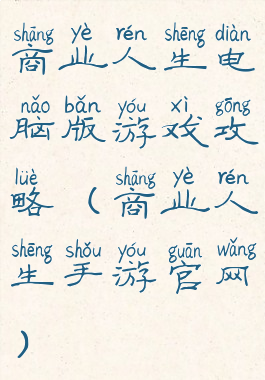 shāng yè rén shēng diàn
商业人生电
nǎo bǎn yóu xì gōng
脑版游戏攻
lüè shāng yè rén
略（商业人
shēng shǒu yóu guān wǎng
生手游官网
）